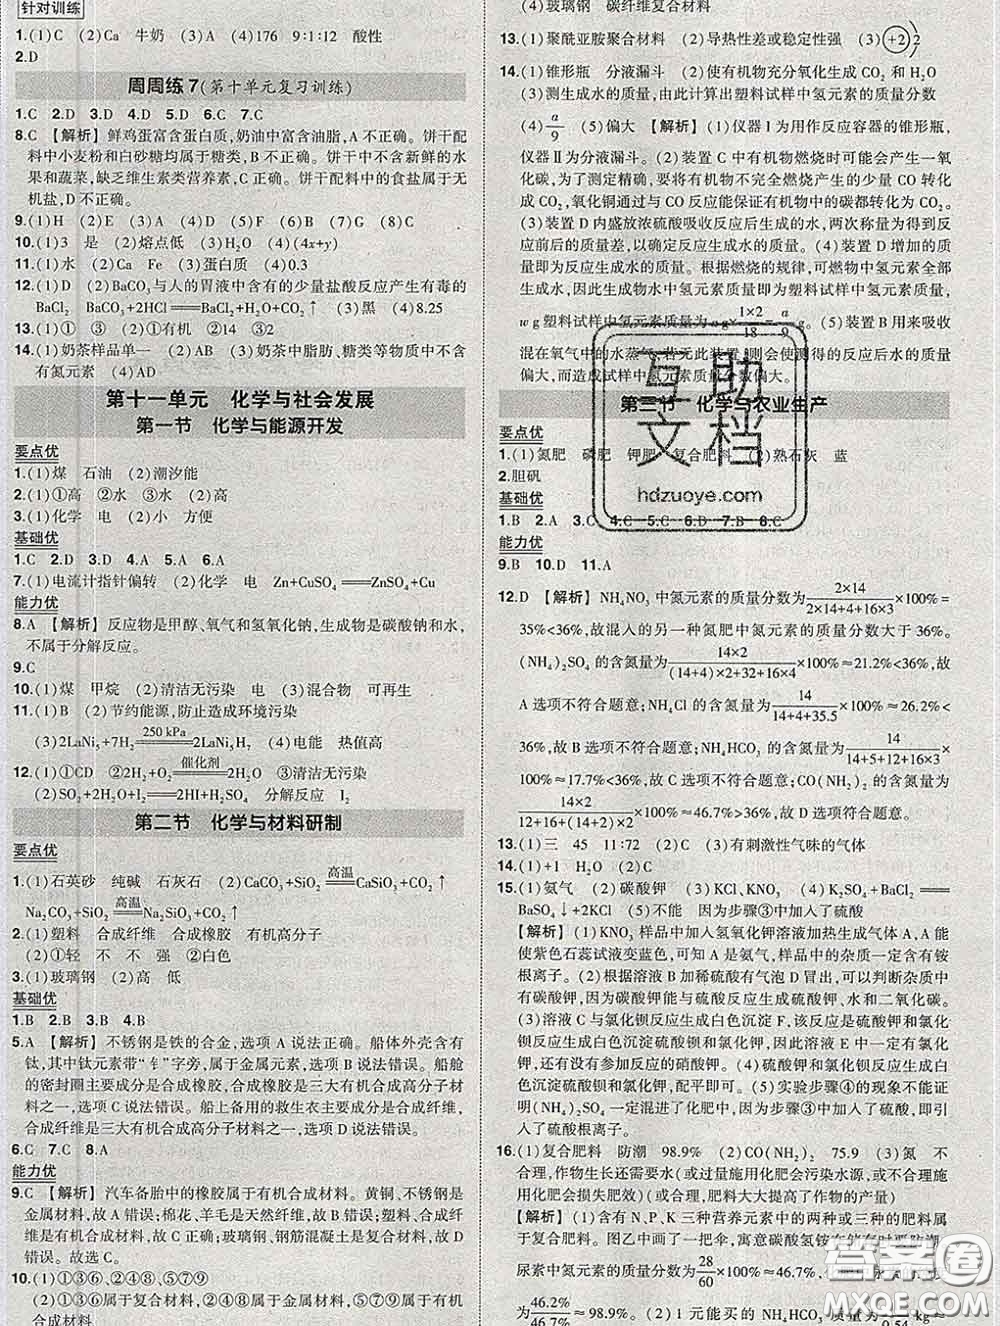 针对训练
1.(1)C (2)Ca 牛奶 (3)A (4)176 9:1:12 酸性
2.D
周周练7(第十单元复习训练)
1.C 2.D 3.D 4.C 5.D 6.C 7.C
8.C 【解析】鲜鸡蛋富含蛋白质,奶油中富含油脂,A不正确。饼干
配料中小麦粉和白砂糖均属于糖类,B不正确。饼干中不含新鲜的水
果和蔬菜,缺乏维生素类营养素,C正确。饼干配料中的食盐属于无
机盐,D不正确。
9.(1)H (2)E (3)F (4)D (5)A
10.(1)3 是 (2)熔点低 (3)H₂O (4)(4x+y)
11.(1)水 (2)Ca Fe (3)蛋白质 (4)0.3
12.(1)D (2)BaCO₃与人的胃液中含有的少量盐酸反应产生有毒的
BaCl₂ BaCO₃+2HCl═══BaCl₂+H₂O+CO₂↑ (3)黑 (4)8.25
13.(1)① ③ (2)①有机 ②14 ③2
14.(1)奶茶样品单一 (2)AB (3)奶茶中脂肪、糖类等物质中不含
有氮元素 (4)AD
第十一单元 化学与社会发展
第一节 化学与能源开发
要点优
1.(1)煤 石油 (2)潮汐能
2.(1)①高 ②水 ③水 (2)高
3.(1)化学 电 (2)小 方便
基础优
1.C 2.D 3.D 4.A 5.A 6.A
7.(1)电流计指针偏转 (2)化学 电 Zn+CuSO₄═══ZnSO₄+Cu
能力优
8.A 【解析】反应物是甲醇、氧气和氢氧化钠,生成物是碳酸钠和水,
不属于分解反应。
9.C
10.(1)煤 甲烷 (2)清洁无污染 电 (3)混合物 可再生
11.(1)B (2)节约能源,防止造成环境污染
(3)2LaNi₅+7H₂═250 kPa═2LaNi₅H₇ (4)电能 热值高
12.(1)①CD ②2H₂+O₂═催化剂═2H₂O ③清洁无污染
(2)SO₂+2H₂O+I₂═══2HI+H₂SO₄ 分解反应 I₂
第二节 化学与材料研制
要点优
1.(1)石英砂 纯碱 石灰石 (2)CaCO₃+SiO₂═高温═CaSiO₃+CO₂↑
Na₂CO₃+SiO₂═高温═Na₂SiO₃+CO₂↑
2.(1)塑料 合成纤维 合成橡胶 有机高分子
(2)①轻 不 不 强 ②白色
3.(1)玻璃钢 (2)高 低
基础优
1.B 2.B 3.B 4.B
5.A 【解析】不锈钢是铁的合金,选项A说法正确。船体外壳含有
钛,其中钛元素带“钅”字旁,属于金属元素,选项B说法错误。船舱
的密封圈主要成分是合成橡胶,合成橡胶属于三大有机合成高分子材
料之一,选项C说法错误。船上备用的救生衣主要成分是合成纤维,
合成纤维是三大有机合成高分子材料之一,选项D说法错误。
6.C 7.C 8.A
能力优
9.C 【解析】汽车备胎中的橡胶属于有机合成材料。黄铜、不锈钢是
金属材料,故A错误;棉花、羊毛是天然纤维,故B错误;塑料、合成纤
维属于有机合成材料,故C正确;玻璃钢,钢筋混凝土是复合材料,故
D错误。故选C。
10.(1)①③⑥,②④⑧,⑤⑦⑨
(2)①③⑥属于复合材料,②④⑧属于金属材料,⑤⑦⑨属于有机
合成材料
(4)玻璃钢 碳纤维复合材料
13.(1)聚酰亚胺聚合材料 (2)导热性差或稳定性强 (3)+2 2
14.(1)锥形瓶 分液漏斗 (2)使有机物充分氧化生成CO₂和H₂O
(3)测生成水的质量,由此计算出塑料试样中氢元素的质量分数
(4)a/9 (5)偏大 【解析】(1)仪器Ⅰ为用作反应容器的锥形瓶,
仪器Ⅱ为分液漏斗。(2)装置C中有机物燃烧时可能会产生一氧
化碳,为了测定精确,要将有机物不完全燃烧产生的少量CO转化
成CO₂,氧化铜通过与CO反应能保证有机物中的碳都转化为CO₂。
(3)装置D内盛放浓硫酸吸收反应后生成的水,两次称量为得到反
应前后的质量差,以确定燃烧生成水的质量。(4)装置D增加的质量
即为反应生成水的质量。根据燃烧的规律,可燃物中氢元素全部
生成水,因此生成物水中氢元素质量即为塑料试样中氢元素质量,
w g塑料试样中氢元素质量为a g×(1×2)/18=a/9 g。(5)装置B用来吸收
混在氧气中的水蒸气,若无此装置,则会使测得的反应后水质量
偏大,而造成试样中氢元素质量分数偏大。
第三节 化学与农业生产
要点优
1.(1)氮肥 磷肥 钾肥 复合肥料 (2)熟石灰 蓝
2.胆矾
基础优
1.B 2.A 3.C 4.C 5.C 6.D 7.B 8.C
能力优
9.B 10.D 11.A
12.D 【解析】NH₄NO₃中氮元素的质量分数为(2×14)/(2×14+4+16×3)×100%=
35%<36%,故混入的另一种氮肥中氮元素的质量分数大于36%。
(NH₄)₂SO₄的含氮量为(14×2)/((14+4)×2+32+16×4)×100%≈21.2%<36%,故
A选项不符合题意;NH₄Cl的含氮量为14/(14+4+35.5)×100%≈26.2%<
36%,故B选项不符合题意;NH₄HCO₃的含氮量为14/(14+5+12+16×3)×
100%≈17.7%<36%,故C选项不符合题意;CO(NH₂)₂的含氮量为
(14×2)/(12+16+(14+2)×2)×100%≈46.7%>36%,故D选项符合题意。
13.(1)三 45 11:72 (2)C (3)有刺激性气味的气体
14.(1)+1 H₂O (2)C
15.(1)氨气 (2)碳酸钾 (3)KCl、KNO₃ (4)K₂SO₄+BaCl₂═══
BaSO₄↓+2KCl (5)不能 因为步骤③中加入了硫酸
【解析】(1)KNO₃样品中加入氢氧化钾溶液加热产生气体A,A能
使紫色石蕊试液变蓝色,可知A是氨气,样品中的杂质一定含有铵
根离子。(2)根据溶液B加稀硫酸有气泡D冒出,可以判断杂质中
有碳酸钾,因为碳酸钾能够与硫酸反应生成硫酸钾、水和二氧化碳。
(3)溶液C和氯化钡反应生成白色沉淀F,就是硫酸钾和氯化钡反
应生成白色沉淀硫酸钡和氯化钾,因此溶液E中含有氯化钾,还
有没有参加反应的硝酸钾。(4)硫酸钾和氯化钡反应生成白
色沉淀硫酸钡和氯化钾,配平即可。(5)实验步骤④的现象不能证明
(NH₄)₂SO₄一定混进了化肥中,因为步骤③加入了硫酸,即引
入了硫酸根离子。
16.(1)复合肥料 防潮 98.9% (2)CO(NH₂)₂ 75.9 (3)氮 不
合理,作物生长还需要水(或过量施用化肥会污染水源,或不合理施用
化肥会损失肥效)(或合理,肥料大大提高了作物的产量)
【解析】(1)含有N、P、K三种营养元素中的两种或三种的肥料属
于复合肥料。图乙中画了一把伞,寓意碳酸氢铵在储存时要防潮。
尿素中氮元素的质量分数为28/60×100%≈46.7%,
46.2%/46.7%×100%≈98.9%。(2)1元能买的NH₄HCO₃质量为
互助文档
hdzuoye.com
答案圈
MXQE.COM